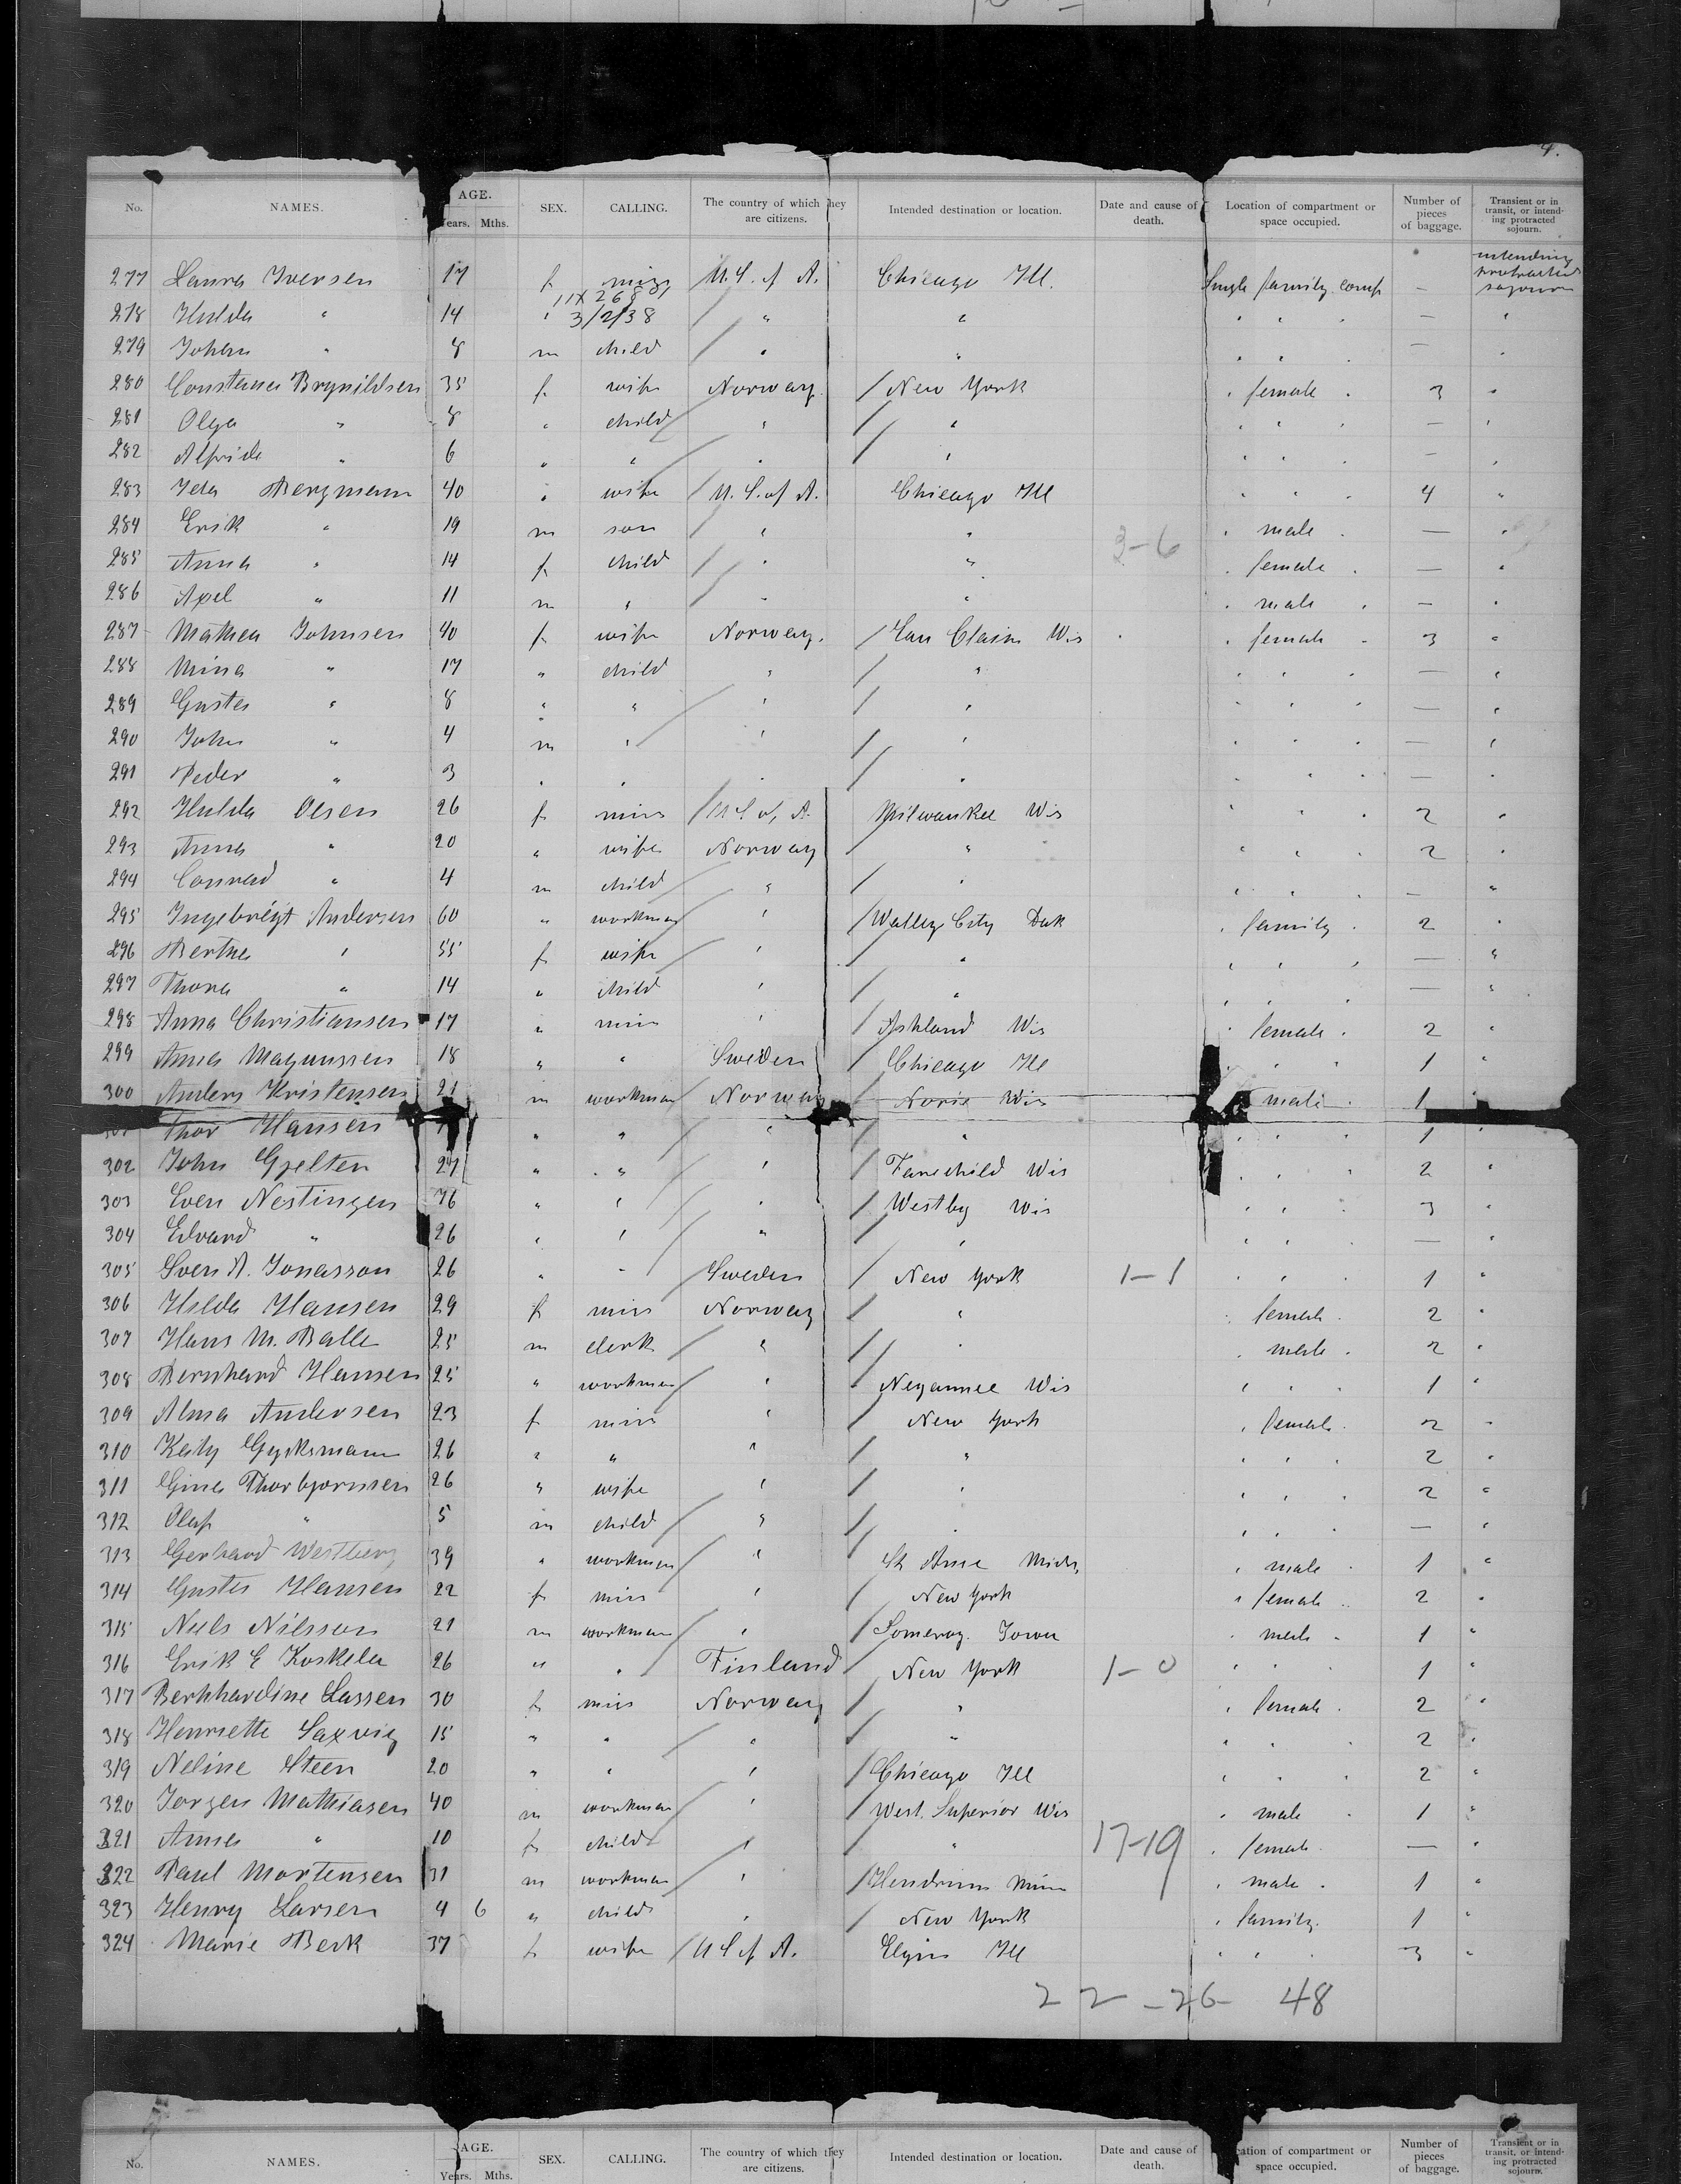 4.
No. NAMES. AGE. Years. Mths. SEX. CALLING. The country of which they are citizens. Intended destination or location. Date and cause of death. Location of compartment or space occupied. Number of pieces of baggage. Transient or in transit, or intending protracted sojourn.
277 Laura Iversen 17 f miss U.S. of A. Chicago Ill. Single family comp — intending protracted sojourn
11X268
278 Hulda " 14 " 3/2/38 / " " " " " — "
279 Johan " 8 m child / " " " " — "
280 Constance Brynildsen 35 f. wife Norway / New York " female " 3 "
281 Olga " 8 " child / " / " " " " — "
282 Alfride " 6 " " / " / " " " " — "
283 Ida Bergmann 40 " wife / U.S. of A. Chicago Ill " " " 4 "
284 Erik " 19 m son / " " 3-6 " male " — "
285 Anna " 14 f child / " " " female " — "
286 Axel " 11 m " / " " " male " — "
287 Mathea Johnsen 40 f wife Norway. / Eau Claire Wis " female " 3 "
288 Mina " 17 " child " / " " " " — "
289 Gusta " 8 " " / " / " " " " — "
290 John " 4 m " / " / " " " " — "
291 Peder " 3 " " " / " " " " — "
292 Hulda Olsen 26 f miss / U S of A. Milwaukee Wis " " " 2 "
293 Anna " 20 " wife Norway / " " " " 2 "
294 Conrad " 4 m child / " / " " " " — "
295 Ingebrigt Andersen 60 " workman / " / Walley City Dak " family " 2 "
296 Berthe " 55 f wife / " / " " " " — "
297 Thora " 14 " child " / " " " " — "
298 Anna Christiansen 17 " miss " / Ashland Wis " female " 2 "
299 Anna Magnussen 18 " " Sweden / Chicago Ill " " " 1 "
300 Anders Kristensen 21 m workman / Norway / Norie Wis " male " 1 "
Thor Hansen " " / " / " " " " 1 "
302 John Gjelten 27 " " / " / Fanechild Wis " " " 2 "
303 Even Nestingen 76 " " / " / Westby Wis " " " 3 "
304 Edvard " 26 " " / " / " " " " — "
305 Sven A. Jonasson 26 " " / Sweden / New York 1-1 " " " 1 "
306 Hilda Hansen 29 f miss Norway / " " female " 2 "
307 Hans M. Balle 25 m clerk / " / " " male " 2 "
308 Bernhard Hansen 25 " workman / " / Negaunee Wis " " " 1 "
309 Alma Andersen 23 f miss " / New York " female " 2 "
310 Katy 26 " " " / " " " " 2 "
311 Gina Thorbjornsen 26 " wife " / " " " " 2 "
312 Olaf " 5 m child / " / " " " " — "
313 Gerhard Westberg 39 " workman / " / St Anne Mich " male " 1 "
314 Gusta Hansen 22 f miss " / New York " female " 2 "
315 Niels Nilsson 21 m workman / " / Someroy. Iowa " male " 1 "
316 Erik E Koskela 26 " " / Finland / New York 1-0 " " " 1 "
317 Berhhardine Lassen 30 f miss Norway / " " female " 2 "
318 Henriette Saxvig 15 " " / " / " " " " 2 "
319 Neline Steen 20 " " " / Chicago Ill " " " 2 "
320 Jorgen Mathiasen 40 m workman / " / West. Superior Wis " male " 1 "
321 Anna " 10 f child " / " 17-19 " female " — "
322 Paul Mortensen 31 m workman / " / Hendrum Minn " male " 1 "
323 Henry Larsen 4 6 " child " / New York " family " 1 "
324 Marie Berk 37 f wife / U S of A. Elgin Ill " " " 3 "
22 - 26 - 48
No. NAMES. AGE. Years. Mths. SEX. CALLING. The country of which they are citizens. Intended destination or location. Date and cause of death. Location of compartment or space occupied. Number of pieces of baggage. Transient or in transit, or intending protracted sojourn.